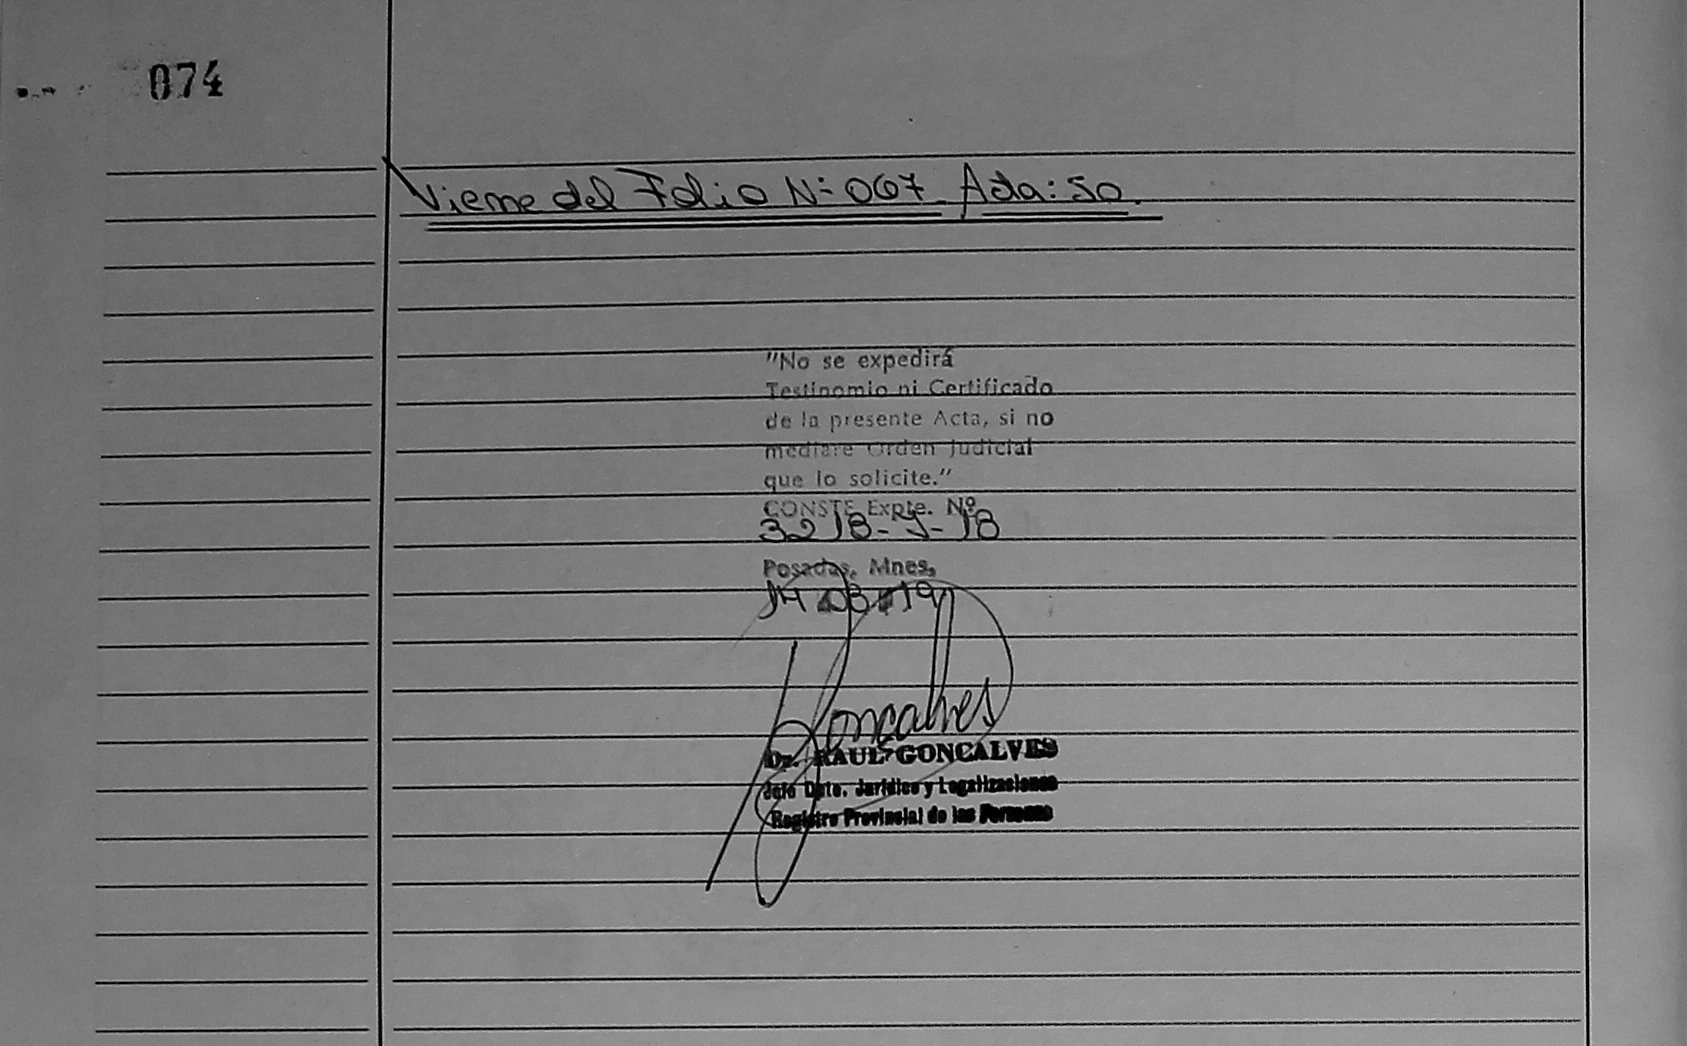 074
Viene del Folio Nº 067. Acta: 50.
"No se expedirá
Testinomio ni Certificado
de la presente Acta, si no
mediare Orden Judicial
que lo solicite."
CONSTE Expte. Nº
3218-J-18
Posadas, Mnes,
14 03 19
Goncalves
Dr. RAUL GONCALVES
Jefe Dpto. Jurídico y Legalizaciones
Registro Provincial de las Personas